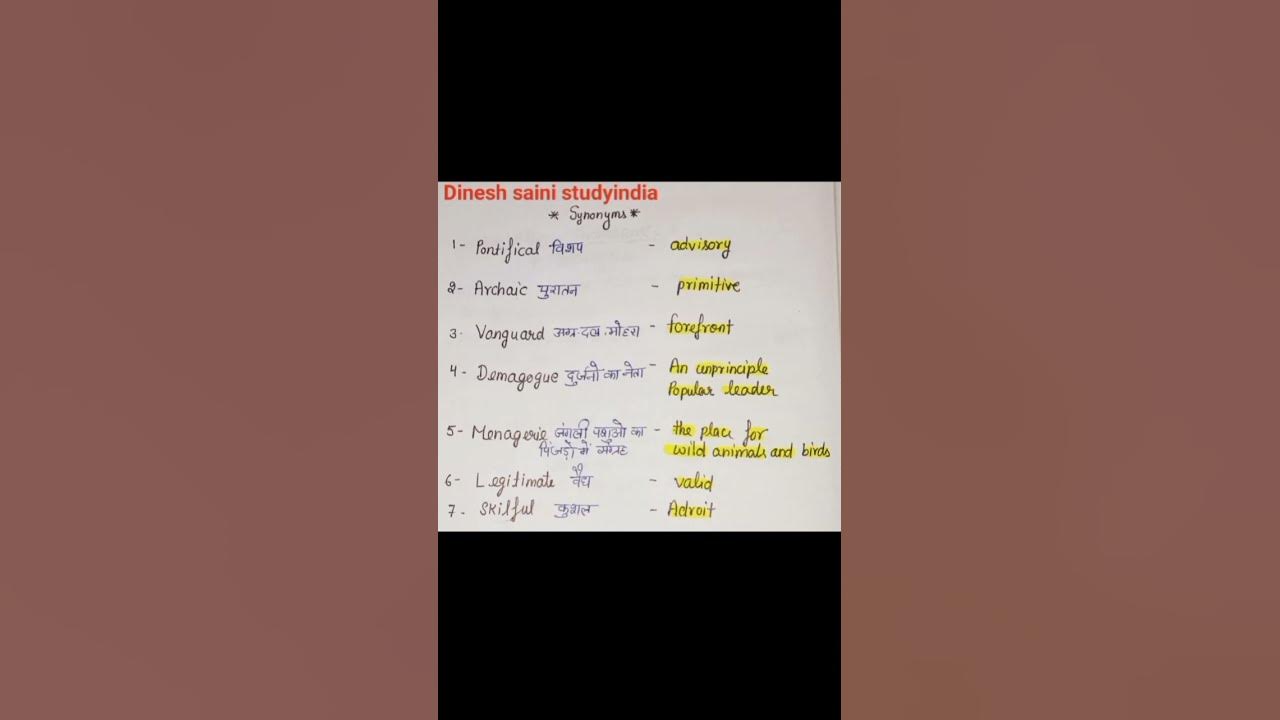 Dinesh saini studyindia
* Synonyms *
1- Pontifical विशप - advisory
2- Archaic पुरातन - primitive
3- Vanguard अग्र-दल, मोहरा - forefront
4- Demagogue दुर्जनो का नेता - An unprinciple
Popular leader
5- Menagerie जंगली पशुओ का - the place for
पिंजड़ो में संग्रह wild animals and birds
6- Legitimate वैध - valid
7- Skilful कुशल - Adroit